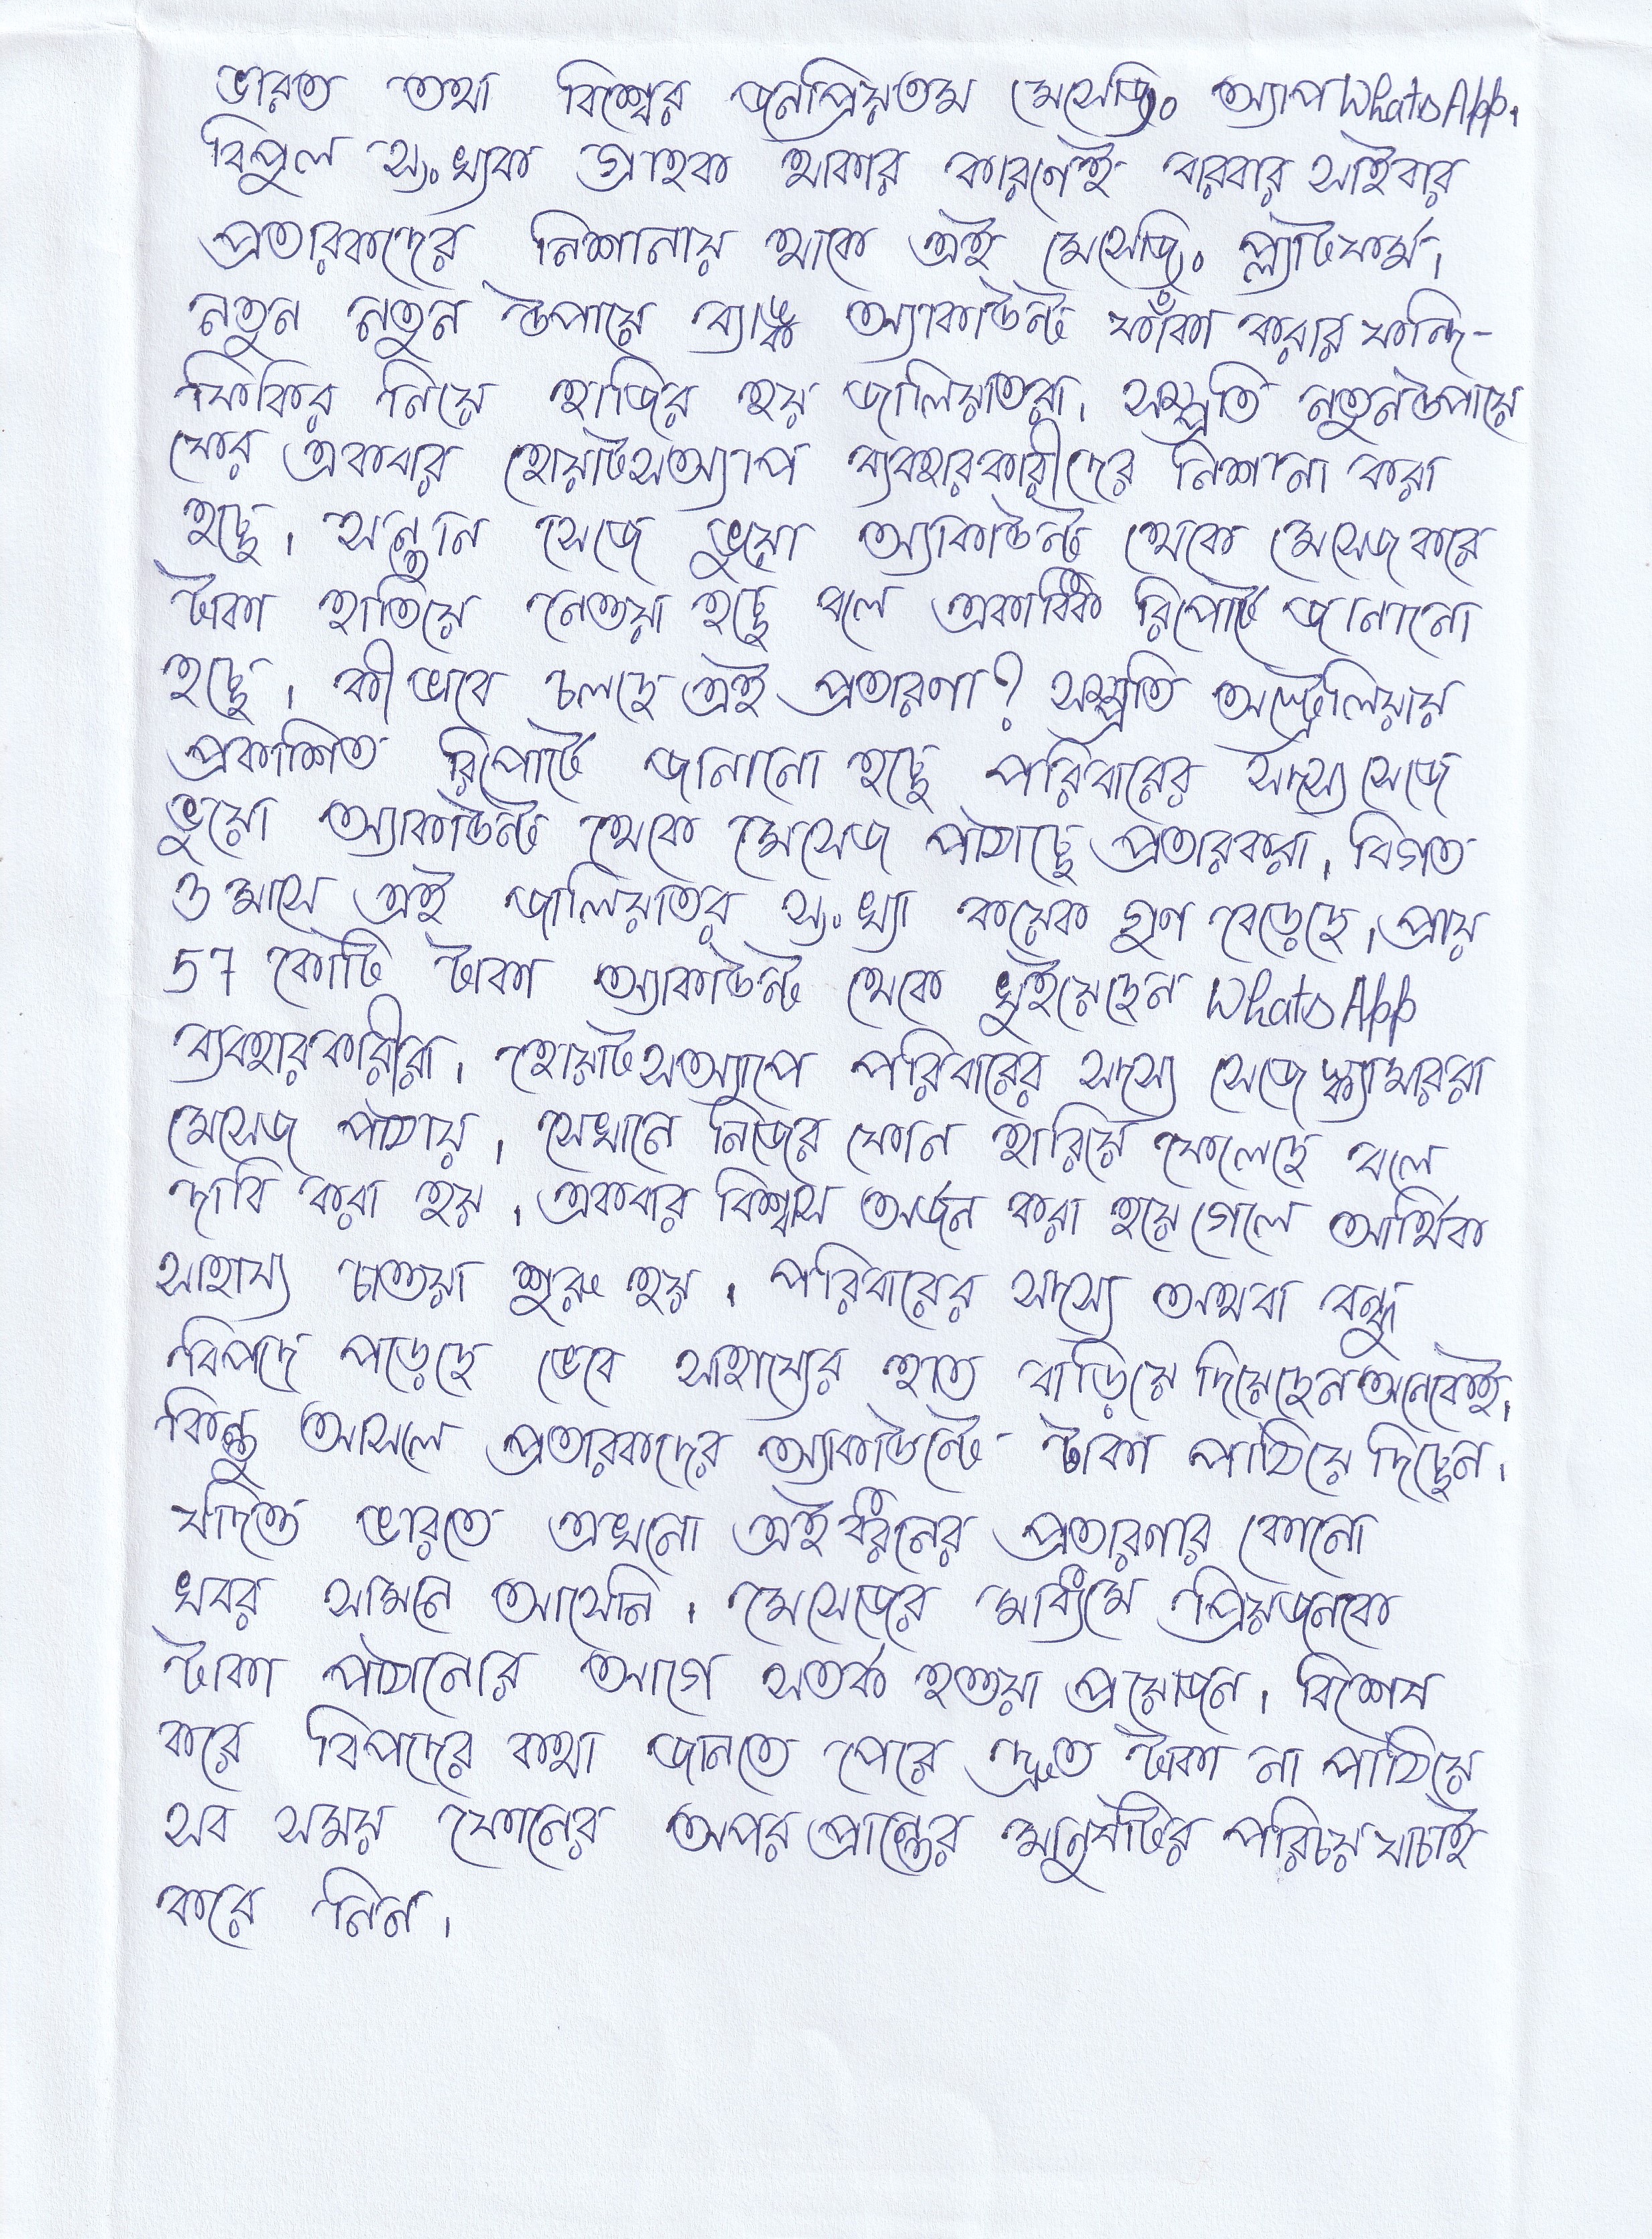 ভারত তথা বিশ্বের জনপ্রিয়তম মেসেজিং অ্যাপ WhatsApp।
বিপুল সংখ্যক গ্রাহক থাকার কারণেই বারবার সাইবার
প্রতারকদের নিশানায় থাকে এই মেসেজিং প্ল্যাটফর্ম।
নতুন নতুন উপায়ে ব্যাঙ্ক অ্যাকাউন্ট ফাঁকা করার ফন্দি-
ফিকির নিয়ে হাজির হয় জালিয়াতরা। সম্প্রতি নতুন উপায়ে
ফের একবার হোয়াটসঅ্যাপ ব্যবহারকারীদের নিশানা করা
হচ্ছে। সন্তান সেজে ভুয়ো অ্যাকাউন্ট থেকে মেসেজ করে
টাকা হাতিয়ে নেওয়া হচ্ছে বলে একাধিক রিপোর্টে জানানো
হচ্ছে। কীভাবে চলছে এই প্রতারণা? সম্প্রতি অস্ট্রেলিয়ায়
প্রকাশিত রিপোর্টে জানানো হচ্ছে পরিবারের সদস্য সেজে
ভুয়ো অ্যাকাউন্ট থেকে মেসেজ পাঠাচ্ছে প্রতারকরা। বিগত
৩ মাসে এই জালিয়াতির সংখ্যা কয়েক গুণ বেড়েছে। প্রায়
57 কোটি টাকা অ্যাকাউন্ট থেকে খুইয়েছেন WhatsApp
ব্যবহারকারীরা। হোয়াটসঅ্যাপে পরিবারের সদস্য সেজে স্ক্যামাররা
মেসেজ পাঠায়। সেখানে নিজের ফোন হারিয়ে ফেলেছে বলে
দাবি করা হয়। একবার বিশ্বাস অর্জন করা হয়ে গেলে আর্থিক
সাহায্য চাওয়া শুরু হয়। পরিবারের সদস্য অথবা বন্ধু
বিপদে পড়েছে ভেবে সাহায্যের হাত বাড়িয়ে দিয়েছেন অনেকেই।
কিন্তু আসলে প্রতারকদের অ্যাকাউন্টে টাকা পাঠিয়ে দিচ্ছেন।
যদিও ভারতে এখনো এই ধরনের প্রতারণার কোনো
খবর সামনে আসেনি। মেসেজের মাধ্যমে প্রিয়জনকে
টাকা পাঠানোর আগে সতর্ক হওয়া প্রয়োজন। বিশেষ
করে বিপদের কথা জানতে পেরে দ্রুত টাকা না পাঠিয়ে
সব সময় ফোনের অপর প্রান্তের মানুষটির পরিচয় যাচাই
করে নিন।